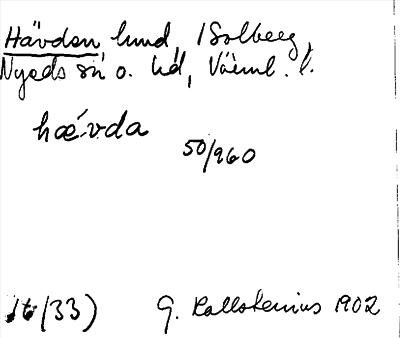 Hävden, hmd, 1 Solberg,
Nyeds sn o. hd, Värml. l.
hǽvda
50/960
16/(33) G. Kallstenius 1902